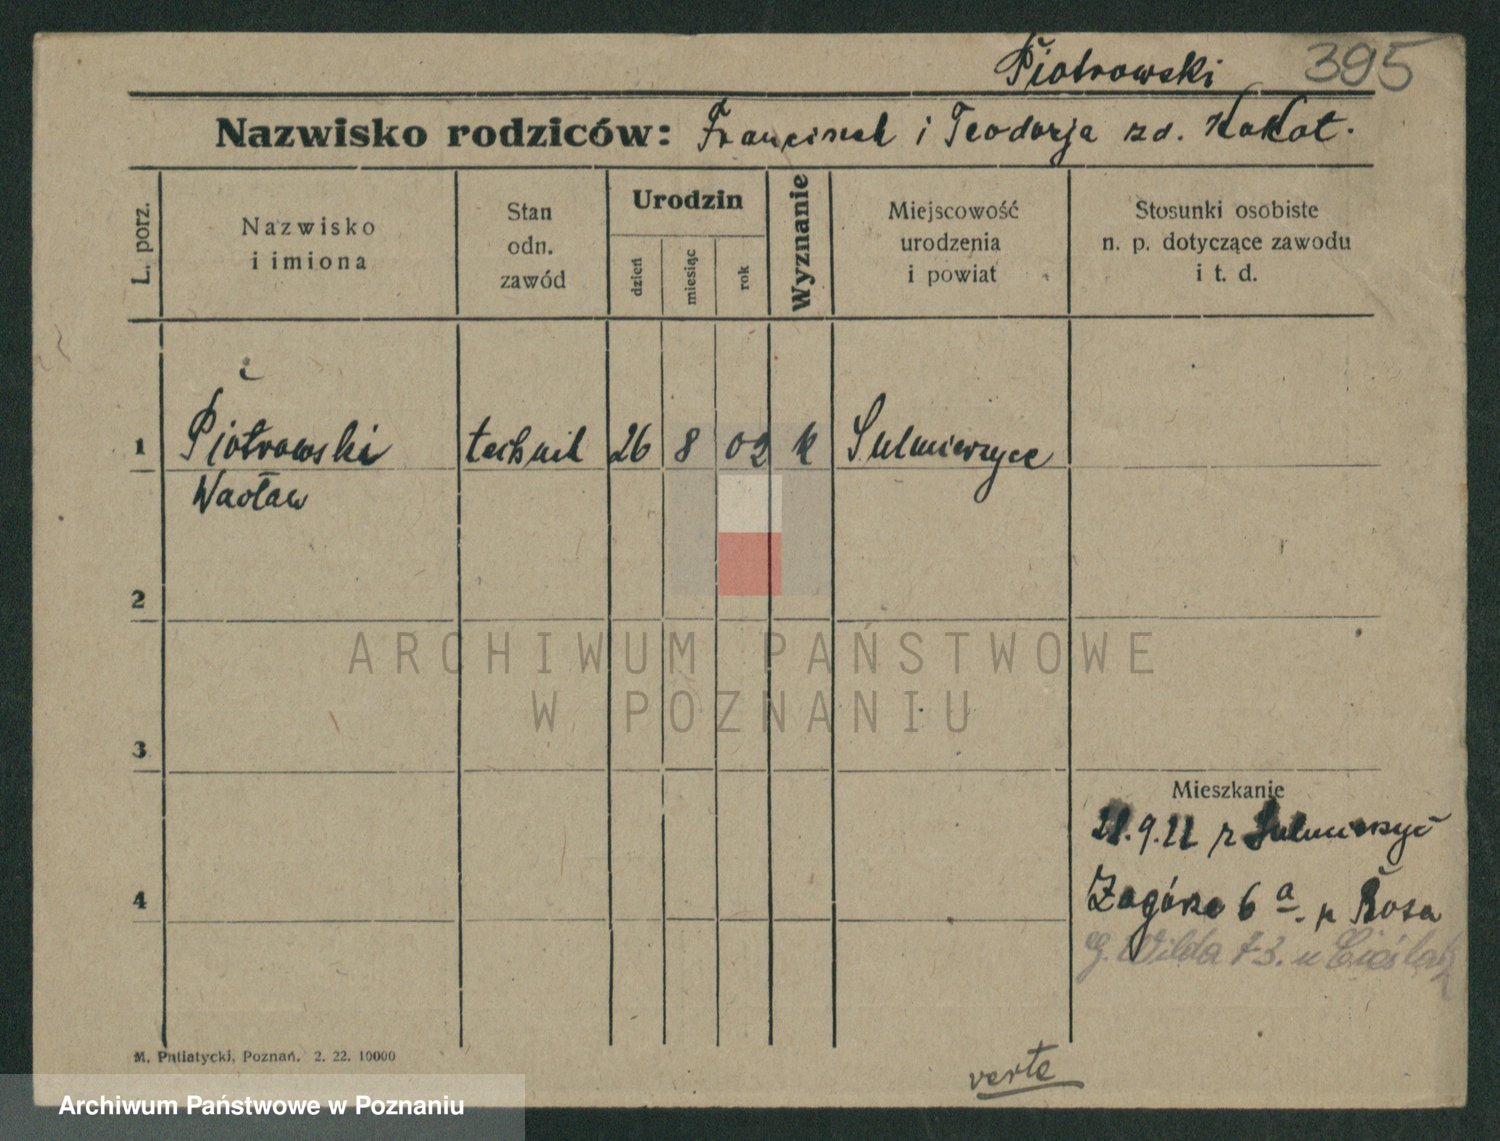 Piotrowski 395
Nazwisko rodziców: Franciszek i Teodorja zd. Kokot.
L. porz.
Nazwisko
i imiona
Stan
odn.
zawód
Urodzin
dzień
miesiąc
rok
Wyznanie
Miejscowość
urodzenia
i powiat
Stosunki osobiste
n. p. dotyczące zawodu
i t. d.
1 Piotrowski technik 26 8 02 k Sulmierzyce
Wacław
2
ARCHIWUM PAŃSTWOWE
W POZNANIU
3
Mieszkanie
21.9.22 z Sulmierzyc
4 Zagórze 6 a. p
G. Wilda 73. u Cieślak
M. Putiatycki, Poznań. 2. 22. 10000
verte
Archiwum Państwowe w Poznaniu